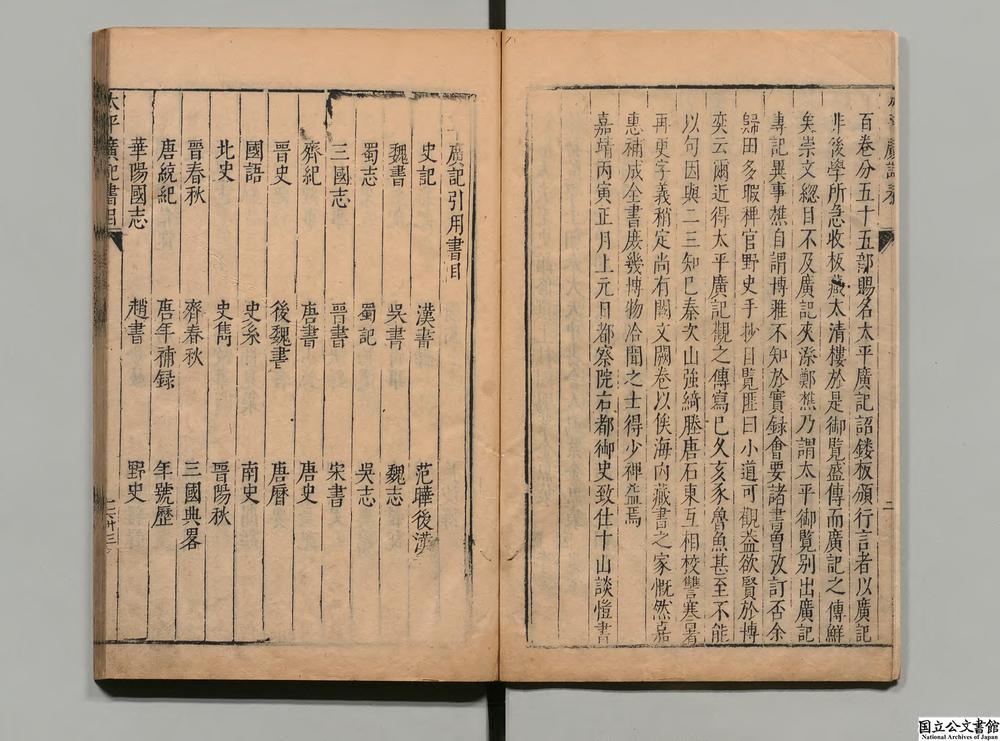 百卷分五十五部賜名太平廣記詔鏤板頒行言者以廣記
非後學所急收板藏太清樓於是御覽盛傳而廣記之傳鮮
矣崇文總目不及廣記夾漈鄭樵乃謂太平御覽别出廣記
專記異事樵自謂博雅不知於實録會要諸書曽攷訂否余
歸田多暇稗官野史手抄目覧匪曰小道可觀盖欲賢於博
奕云爾近得太平廣記觀之傳寫已久亥豕魯魚甚至不能
以句因與二三知巳秦次山強綺塍唐石東互相校讐寒暑
再更字義稍定尚有闕文闕卷以俟海内藏書之家慨然嘉
惠補成全書庶幾博物洽聞之士得少裨益焉
嘉靖丙寅正月上元日都察院右都御史致仕十山談愷書
二
廣記引用書目
史記 漢書 范曄後漢
魏書 吳書 魏志
蜀志 蜀記 吳志
三國志 晋書 宋書
齊紀 唐書 唐史
晋史 後魏書 唐曆
國語 史系 南史
北史 史雋 晋陽秋
晋春秋 齊春秋 三國典畧
唐統紀 唐年補録 年號歷
華陽國志 趙書 野史
太平廣記書目
国立公文書館
National Archives of Japan